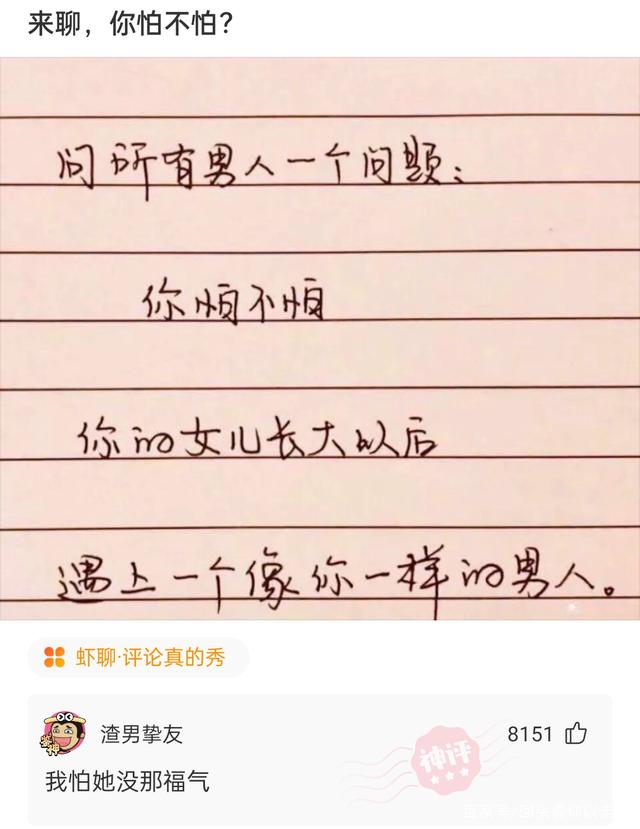 来聊，你怕不怕？
问所有男人一个问题：
你怕不怕
你的女儿长大以后
遇上一个像你一样的男人。
虾聊·评论真的秀
渣男挚友
8151
神评
我怕她没那福气